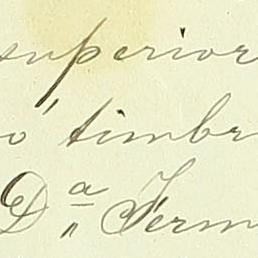 superior
o' timbr
D.ª Ferm